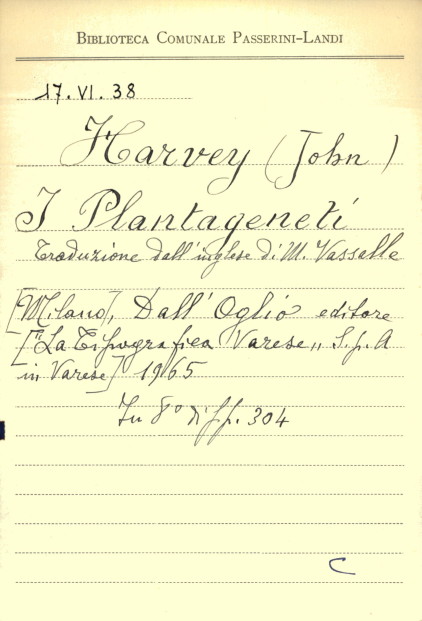 BIBLIOTECA COMUNALE PASSERINI-LANDI
17.VI.38
Harvey (John)
I Plantageneti
Traduzione dall'inglese di M. Vassalle
[Milano], Dall'Oglio editore
["La Tipografica Varese" S.p.A
in Varese] 1965
In 8° di pp. 304
C